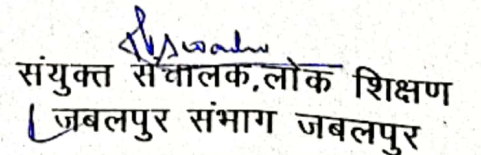 संयुक्त संचालक,लोक शिक्षण
जबलपुर संभाग जबलपुर